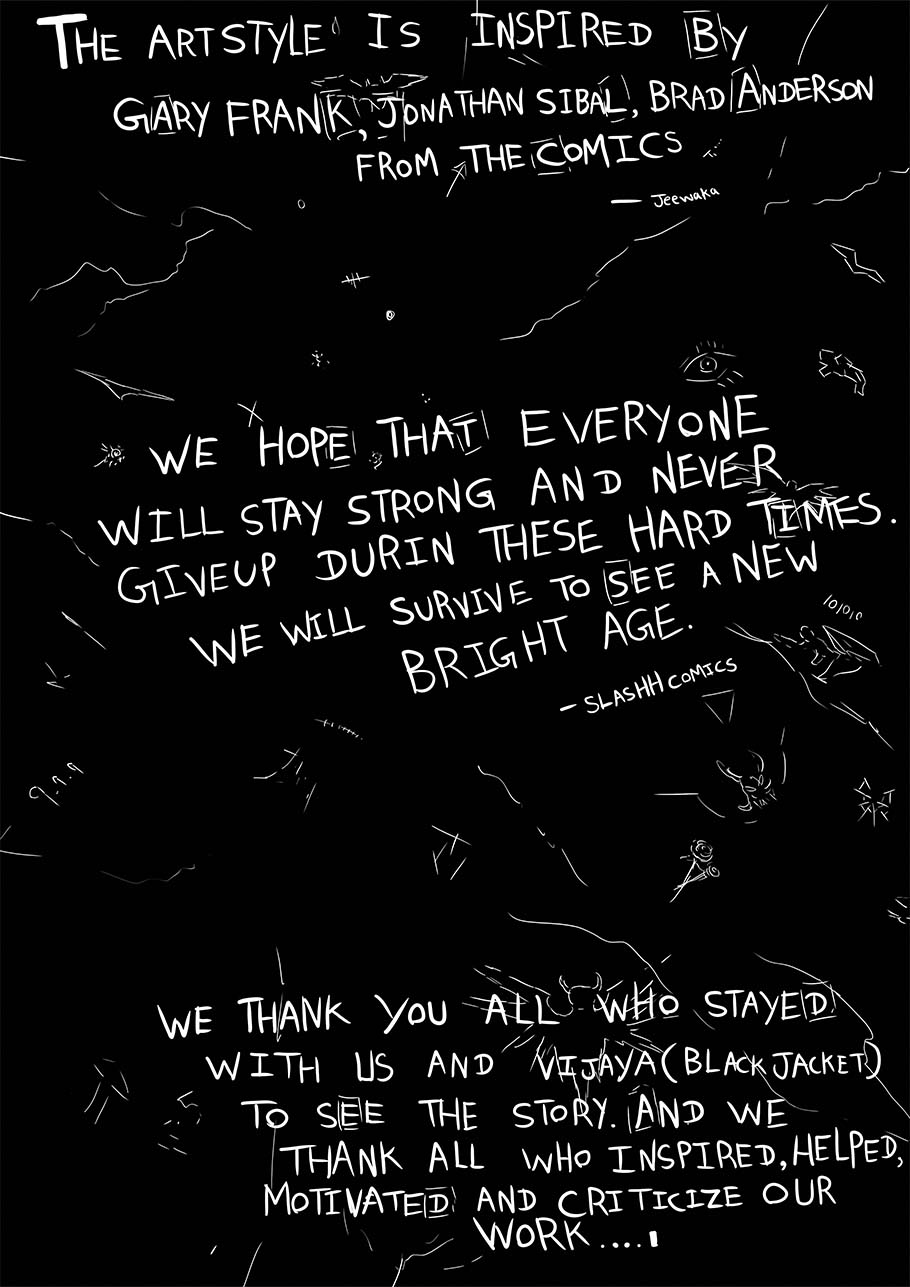 THE ARTSTYLE IS INSPIRED BY
GARY FRANK, JONATHAN SIBAL, BRAD ANDERSON
FROM THE COMICS
— Jeewaka
WE HOPE THAT EVERYONE
WILL STAY STRONG AND NEVER
GIVEUP DURIN THESE HARD TIMES.
WE WILL SURVIVE TO SEE A NEW
BRIGHT AGE.
101010
— SLASHH COMICS
9.9.9
WE THANK YOU ALL WHO STAYED
WITH US AND VIJAYA (BLACK JACKET)
TO SEE THE STORY. AND WE
THANK ALL WHO INSPIRED, HELPED,
MOTIVATED AND CRITICIZE OUR
WORK....